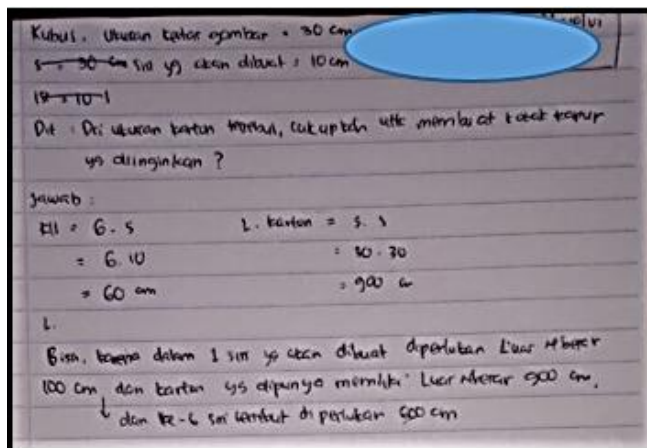 Kubus. Ukuran kertas gambar = 30 cm
s = 30 cm sisi yg akan dibuat = 10 cm
Dit : Dri ukuran karton tersebut, cukupkah utk membuat kotak kapur
yg diinginkan ?
Jawab :
Kll = 6 . s
L. karton = s . s
= 6 . 10
= 30 . 30
= 60 cm
= 900 cm
L.
Bisa, karena dalam 1 sisi yg akan dibuat diperlukan Luas sebesar
100 cm dan karton yg dipunya memiliki Luas sebesar 900 cm,
dan ke-6 sisi tersebut diperlukan 600 cm